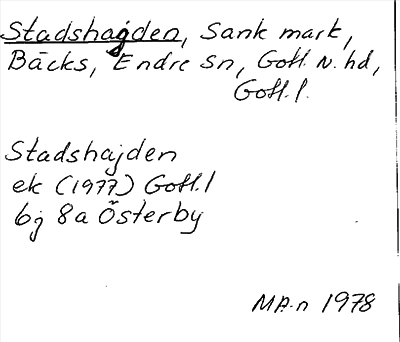 Stadshagden, Sank mark,
Bäcks, Endre sn, Gotl. N. hd,
Gotl. l.
Stadshajden
ek (1977) Gotl. l
bj 8a Österby
MA-n 1978